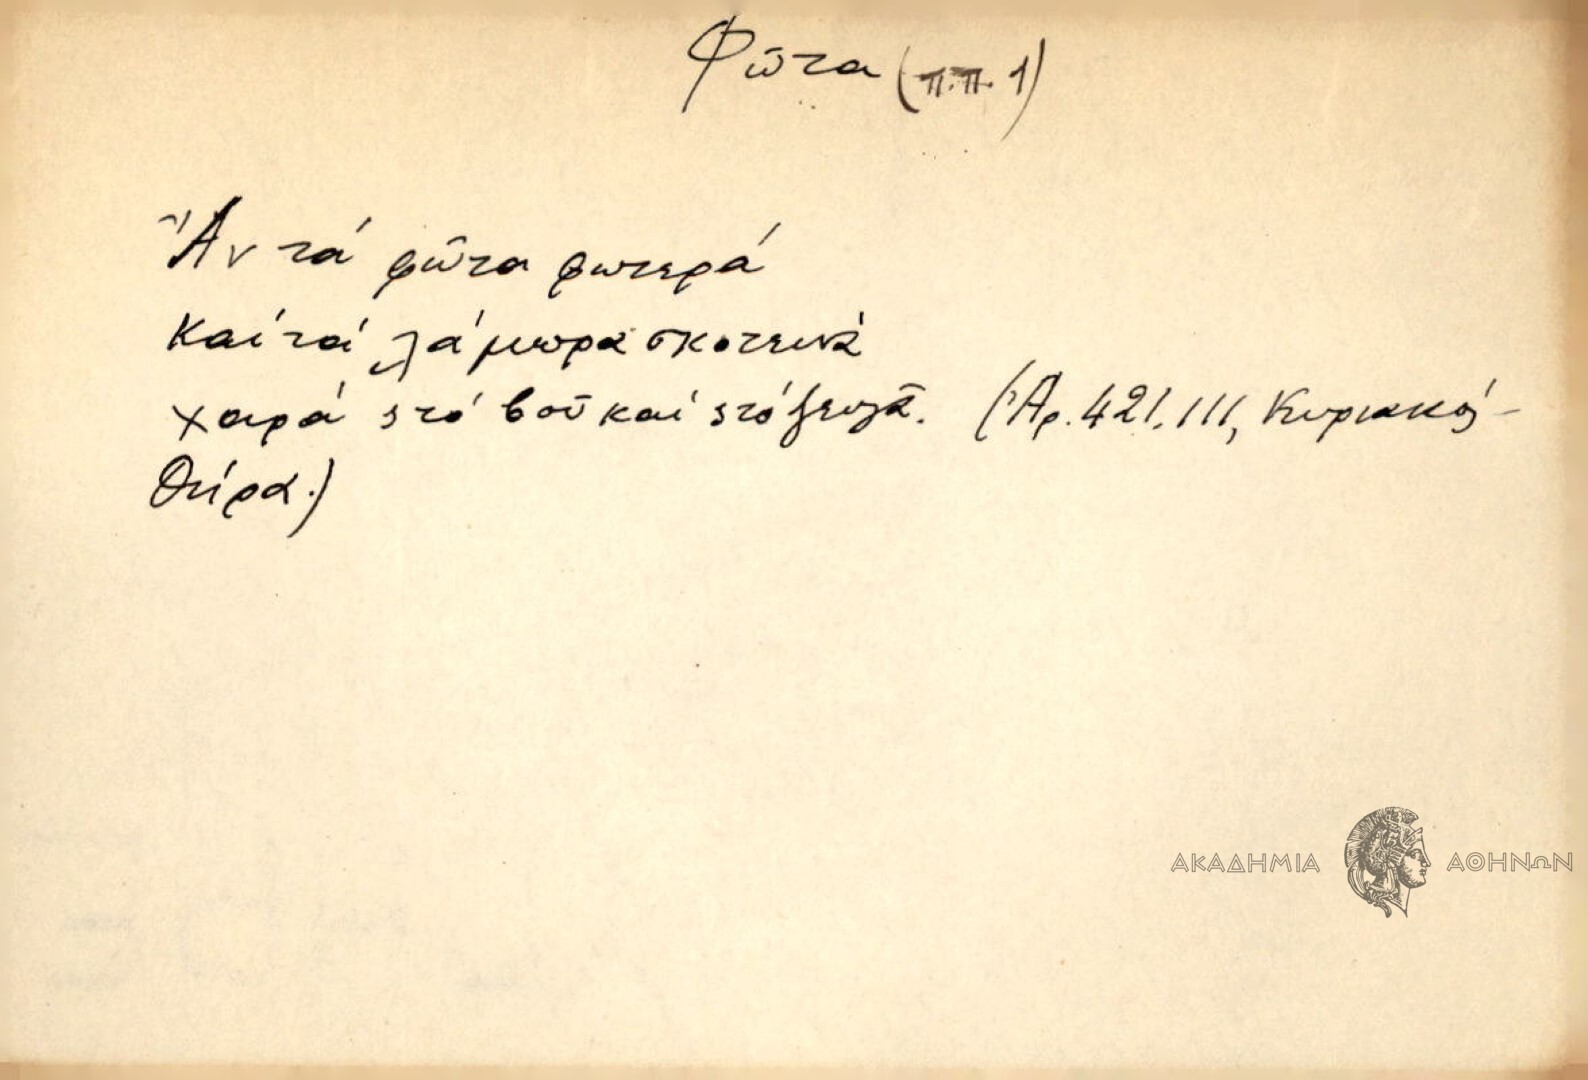 Φῶτα (π.π. 1)
Ἄν τά φῶτα φωτερά
Καί τά λάμπρα σκοτεινά
χαρά στό βοῦ καί στό ζευγᾶ. (Ἀρ. 421. ΙΙΙ, Κυριακός -
Θήρα.)
ΑΚΑΔΗΜΙΑ ΑΘΗΝΩΝ